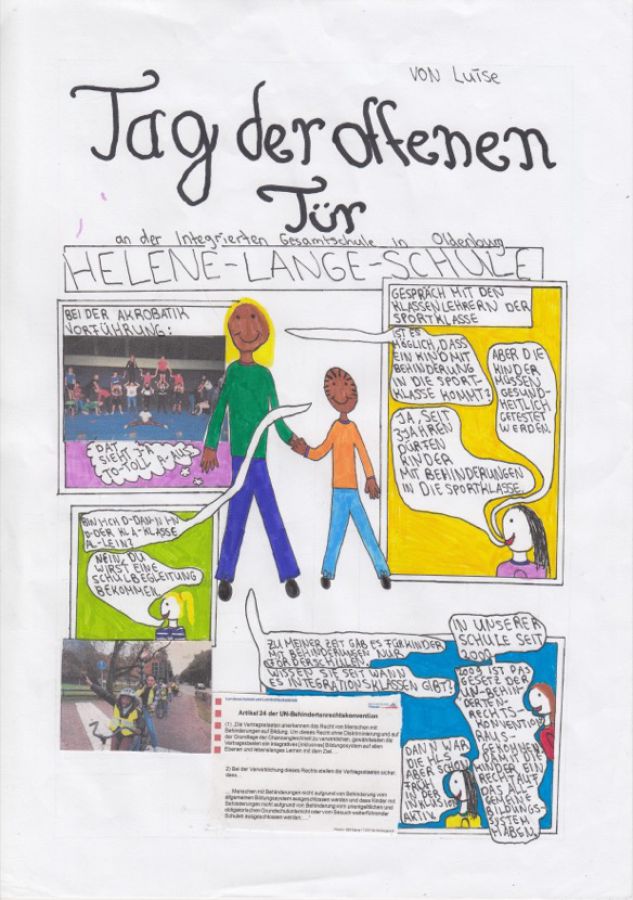 VON Luise
Tag der offenen
Tür
an der Integrierten Gesamtschule in Oldenburg
HELENE-LANGE-SCHULE
BEI DER AKROBATIK
VORFÜHRUNG:
DAT
SIEHT J-A
TO-TOLL A-AUS
GESPRÄCH MIT DEN
KLASSENLEHRERN DER
SPORTKLASSE
IST ES
MÖGLICH, DASS
EIN KIND MIT
BEHINDERUNG
IN DIE SPORT-
KLASSE KOMMT?
ABER DIE
KINDER
MÜSSEN
GESUND-
HEITLICH
GETESTET
WERDEN.
JA, SEIT
3 JAHREN
DÜRFEN
KINDER
MIT BEHINDERUNGEN
IN DIE SPORTKLASSE.
BIN ICH D-DANN IN
D-DER KLA-KLASSE
AL-LEIN?
NEIN, DU
WIRST EINE
SCHULBEGLEITUNG
BEKOMMEN.
ZU MEINER ZEIT GAB ES FÜR KINDER
MIT BEHINDERUNGEN NUR
FÖRDERSCHULEN.
WISSEN SIE SEIT WANN
ES INTEGRATIONSKLASSEN GIBT?
IN UNSERER
SCHULE SEIT
IST DAS
GESETZ DER
UN-BEHIN-
DERTEN-
RECHTS-
KONVENTION
RAUS-
GEKOMMEN
DANN WAR
DIE HLS
ABER SCHON
FRÜH
IN DER
INKLUSION
AKTIV.
Artikel 24 der UN-Behindertenrechtskonvention
(1) „Die Vertragsstaaten anerkennen das Recht von Menschen mit
Behinderungen auf Bildung. Um dieses Recht ohne Diskriminierung und auf
der Grundlage der Chancengleichheit zu verwirklichen, gewährleisten die
Vertragsstaaten ein integratives (inklusives) Bildungssystem auf allen
Ebenen und lebenslanges Lernen mit dem Ziel ...
2) Bei der Verwirklichung dieses Rechts stellen die Vertragsstaaten sicher,
dass...
... Menschen mit Behinderungen nicht aufgrund von Behinderung vom
allgemeinen Bildungssystem ausgeschlossen werden und dass Kinder mit
Behinderungen nicht aufgrund von Behinderung vom unentgeltlichen und
obligatorischen Grundschulunterricht oder vom Besuch weiterführender
Schulen ausgeschlossen werden...."